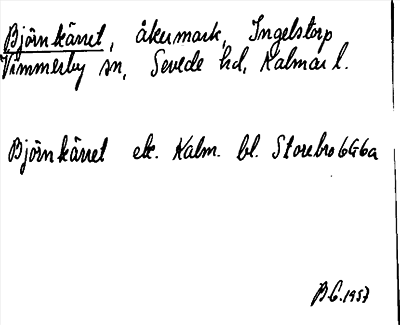 Björnkärret, åkermark, Ingelstorp
Vimmerby sn, Sevede hd, Kalmar l.
Björnkärret ek. Kalm. bl. Storebro 6G6a
B.G. 1957